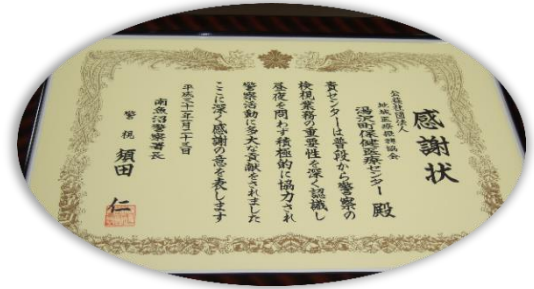 感謝状
公益社団法人
地域医療振興協会
湯沢町保健医療センター 殿
貴センターは普段から警察の
検視業務の重要性を深く認識し
昼夜を問わず積極的に協力され
警察活動に多大な貢献をされました
ここに深く感謝の意を表します
平成三十一年一月二十三日
南魚沼警察署長
警視 須田 仁